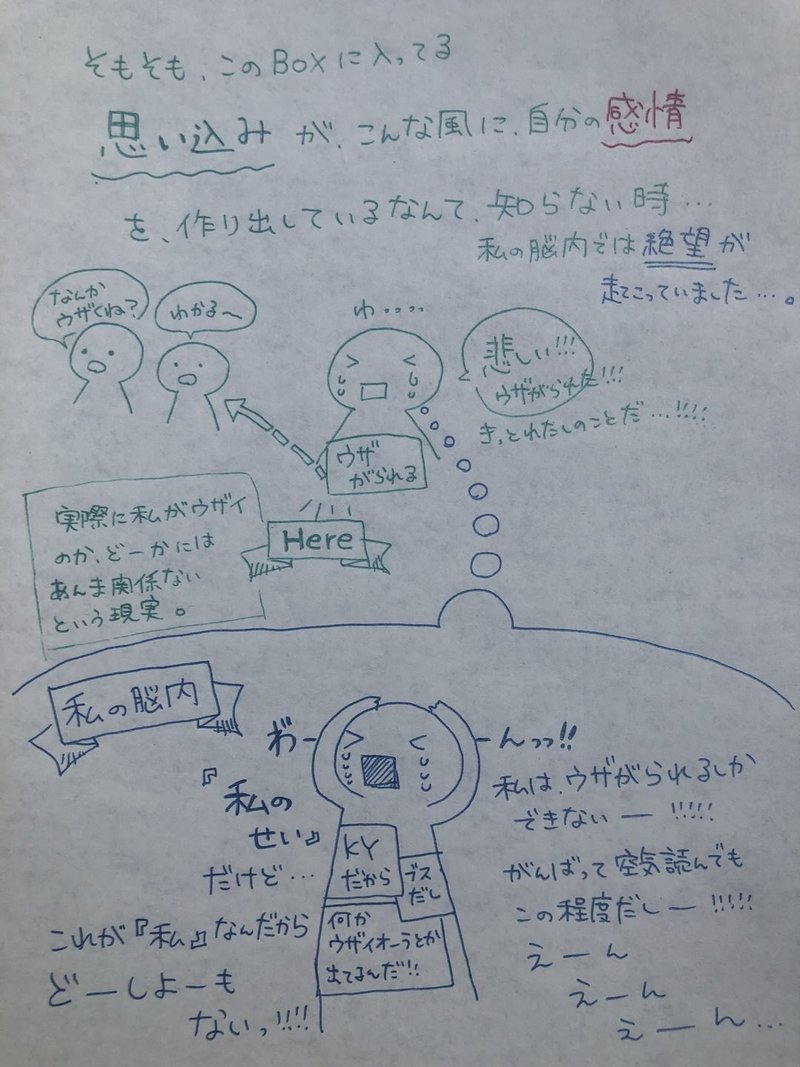 そもそも、このBoxに入ってる
思い込みが、こんな風に、自分の感情
を、作り出しているなんて、知らない時…
私の脳内では絶望が
起こっていました…。
なんか
ウザくね?
わかる〜
わ‥‥
悲しい!!!
ウザがられた!!!
きっとわたしのことだ…!!!!
ウザ
がられる
Here
実際に私がウザイ
のか、どーかには
あんま関係ない
という現実。
私の脳内
わ゙ー
ーんっっ!!
『私の
せい』
だけど…
これが『私』なんだから
どーしよーも
ないっ!!!!
KY
だから
ブス
だし
何か
ウザイオーラとか
出てるんだ!!
私は、ウザがられるしか
できないー!!!!!
がんばって空気読んでも
この程度だしー!!!!!
えーん
えーん
えーん…